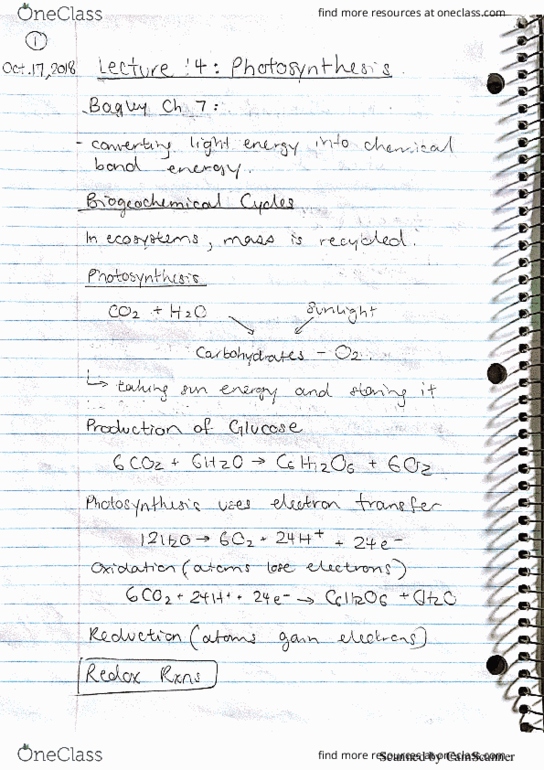 OneClass
find more resources at oneclass.com
1
Oct. 17, 2018
Lecture 14: Photosynthesis
Bagley Ch 7:
- converting light energy into chemical
bond energy.
Biogeochemical Cycles
In ecosystems, mass is recycled.
Photosynthesis
CO2 + H2O
Sunlight
Carbohydrates - O2
↳ taking sun energy and storing it
Production of Glucose
6CO2 + 6H2O → C6H12O6 + 6O2
Photosynthesis uses electron transfer
12H2O → 6O2 + 24H+ + 24e-
Oxidation (atoms lose electrons)
6CO2 + 24H+ + 24e- → C6H12O6 + 6H2O
Reduction (atoms gain electrons)
Redox Rxns
OneClass
find more resources at oneclass.com
Scanned by CamScanner